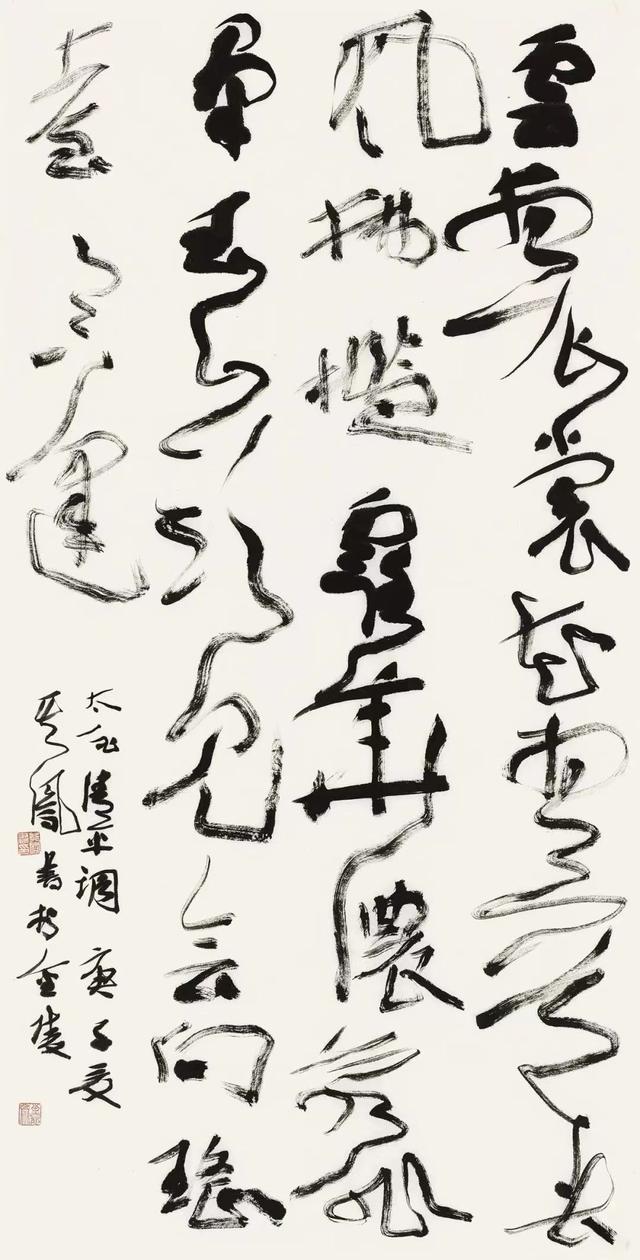 雲想衣裳花想容春
風拂檻露華濃若非
羣玉山頭見会向瑤
臺月下逢
太白清平調 庚子夏
鳳書於金陵